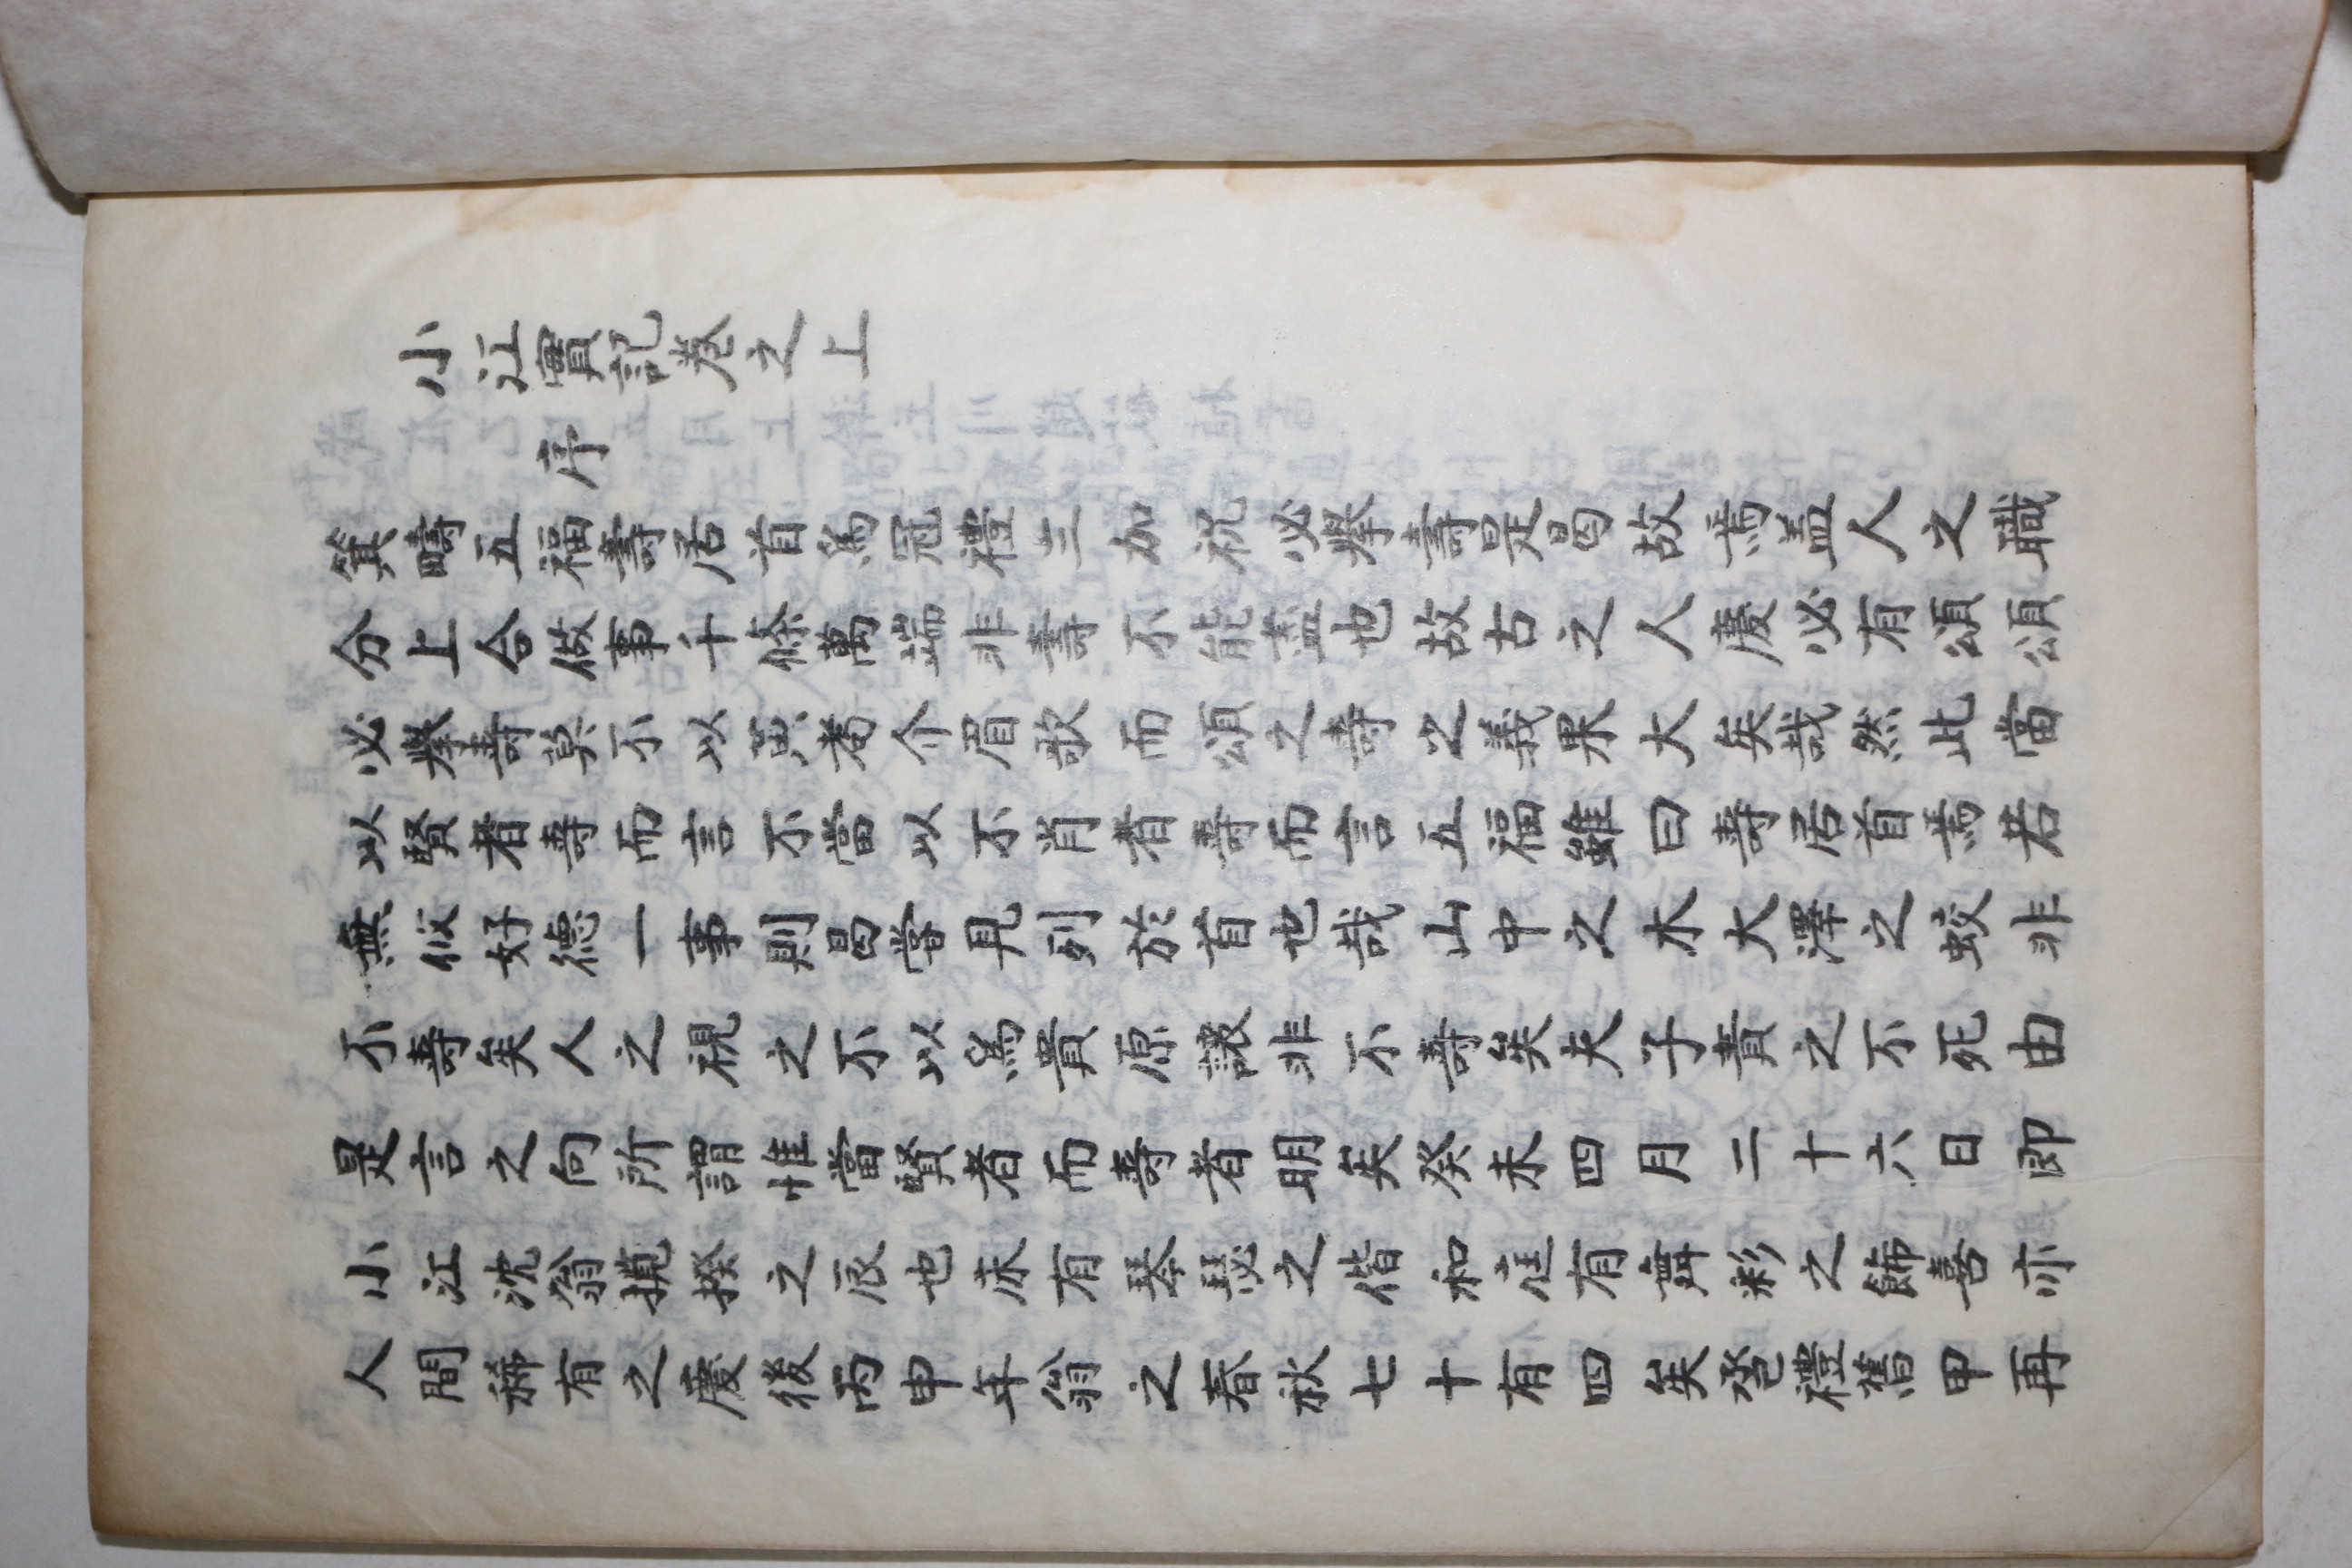 小江實記卷之上
序
箕疇五福壽居首焉冠禮三加祝必擧壽是曷故焉盖人之職
分上合做事千條萬端非壽不能盡也故古之人慶必有頌頌
必擧壽莫不以黃耈介眉歌而頌之壽之義果大矣哉然此當
以賢者壽而言不當以不肖者壽而言五福雖曰壽居首焉若
無攸好德一事則曷嘗見列於首也哉山中之木大澤之蛟非
不壽矣人之視之不以爲貴原讓非不壽矣夫子責之不死由
是言之向所謂惟當賢者而壽者明矣癸未四月二十六日卽
小江沈翁攬揆之辰也床有琴瑟之偕和庭有舞彩之飾喜亦
人間稀有之慶後丙申年翁之春秋七十有四矣巹禮舊甲再